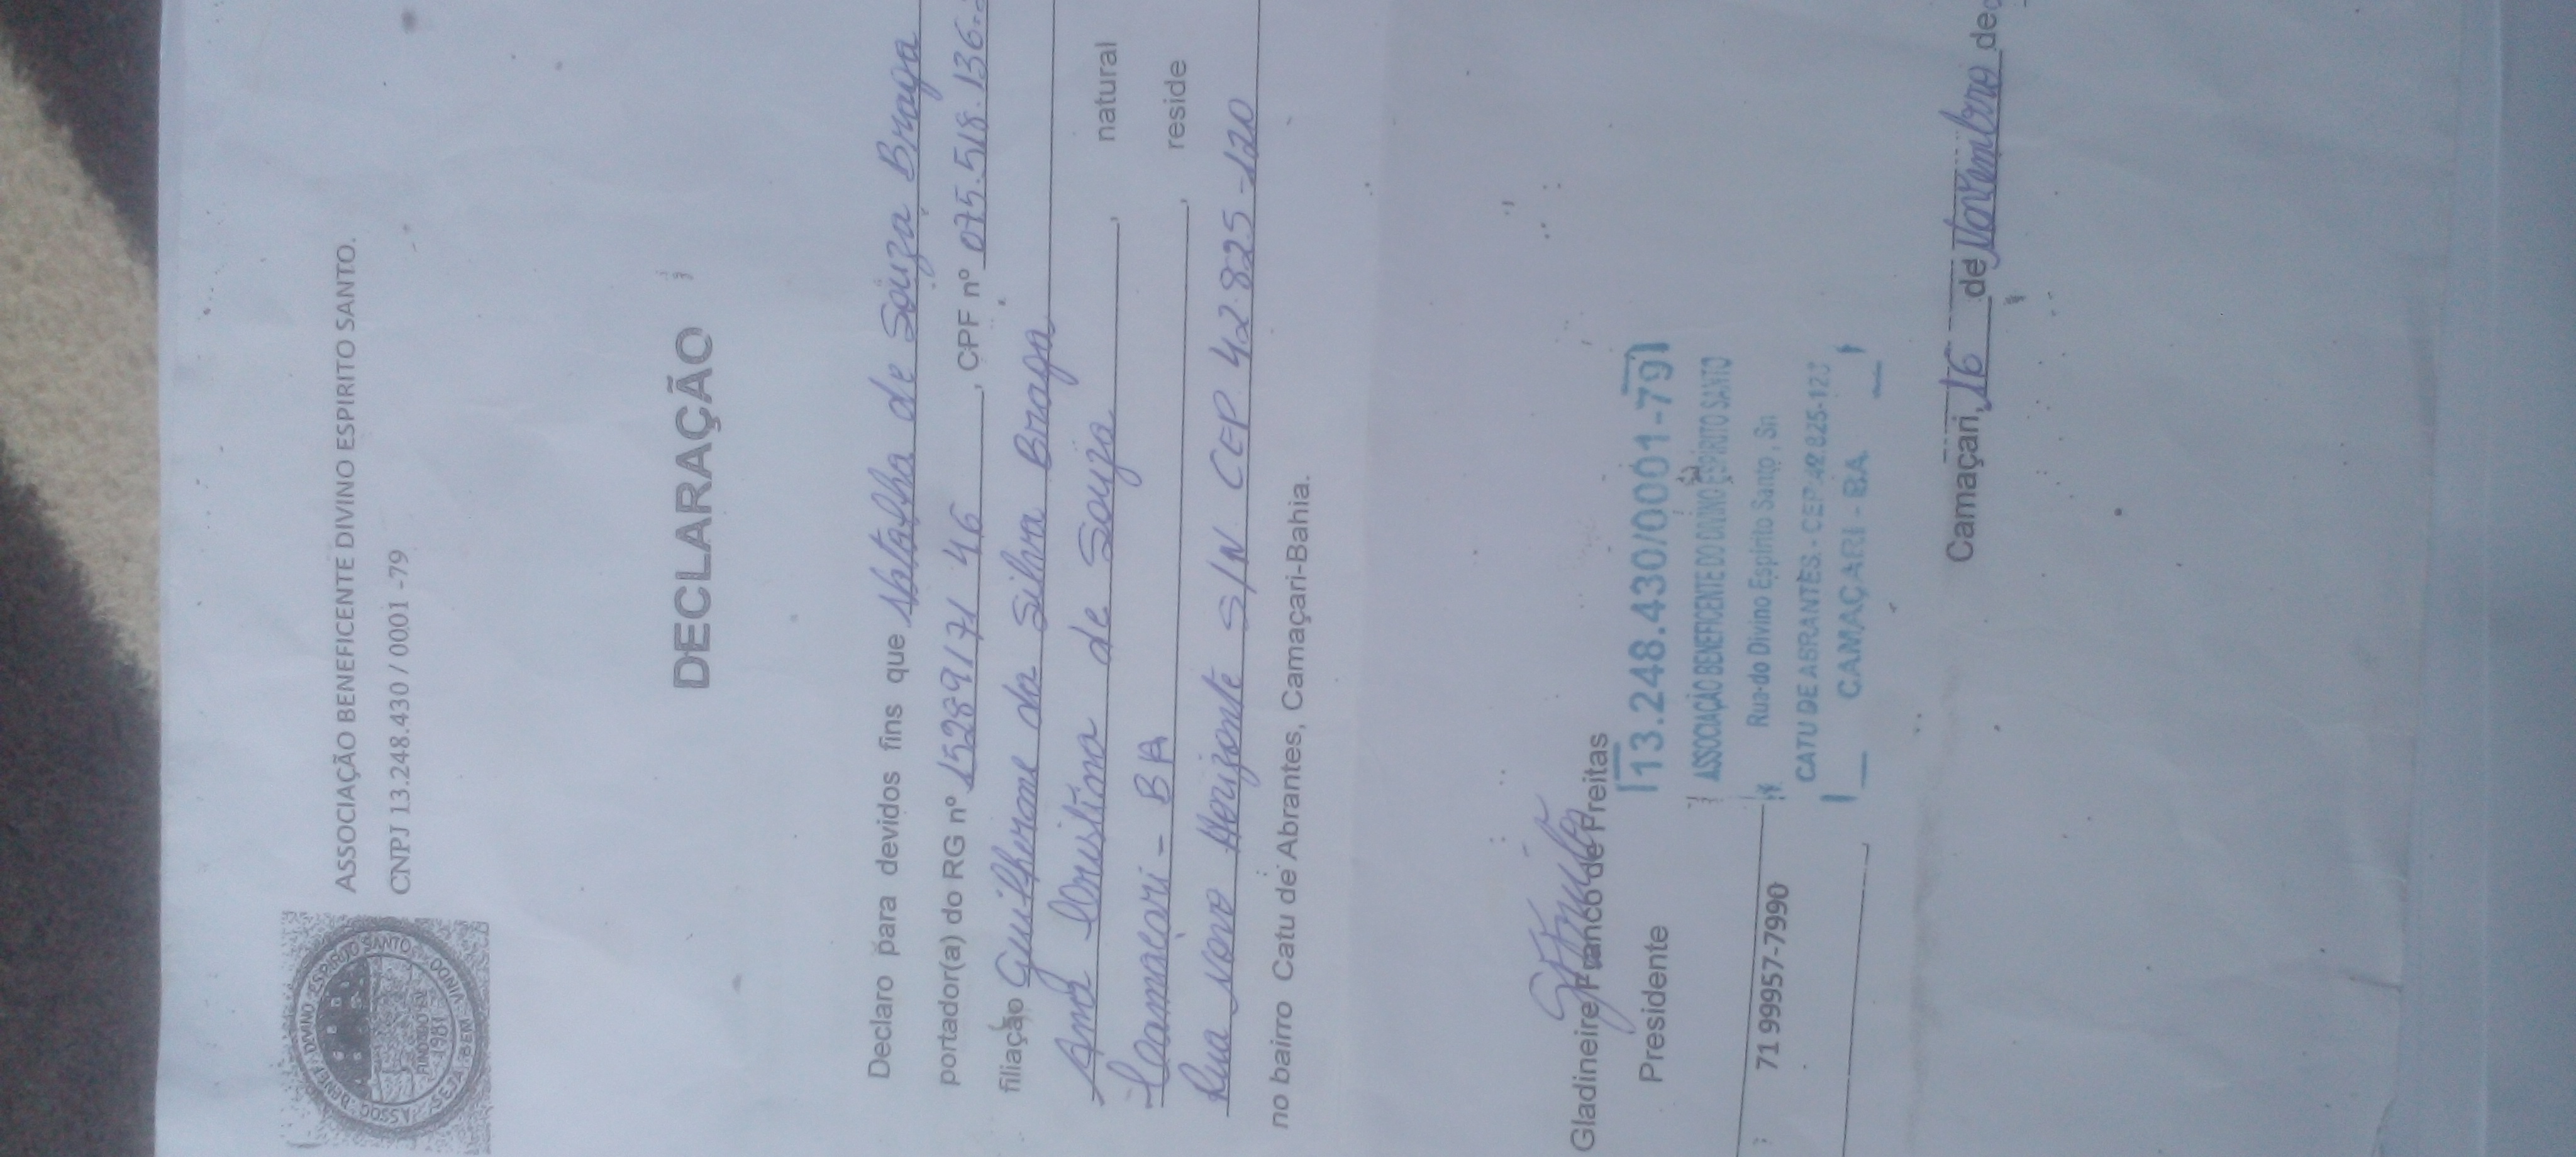 ASSOC. BENEF. DIVINO ESPIRITO SANTO
FUNDADO EM
1981
SEJA BEM VINDO
ASSOCIAÇÃO BENEFICENTE DIVINO ESPIRITO SANTO.
CNPJ 13.248.430 / 0001 -79
DECLARAÇÃO
Declaro para devidos fins que Natalha de Souza Braga
portador(a) do RG nº 15289171 46, CPF nº 075.518.136-
filiação Guilherme da Silva Braga
Ana Cristina de Souza, natural
Camaçari - BA, reside
Rua Novo Horizonte S/N CEP 42.825-120
no bairro Catu de Abrantes, Camaçari-Bahia.
Gladineire Franco de Freitas
Presidente
13.248.430/0001-79
ASSOCIAÇÃO BENEFICENTE DO DIVINO ESPÍRITO SANTO
Rua do Divino Espirito Santo, Sn
71 99957-7990
CATU DE ABRANTES - CEP:42.825-123
CAMAÇARI - BA
Camaçari, 16 de Novembro de